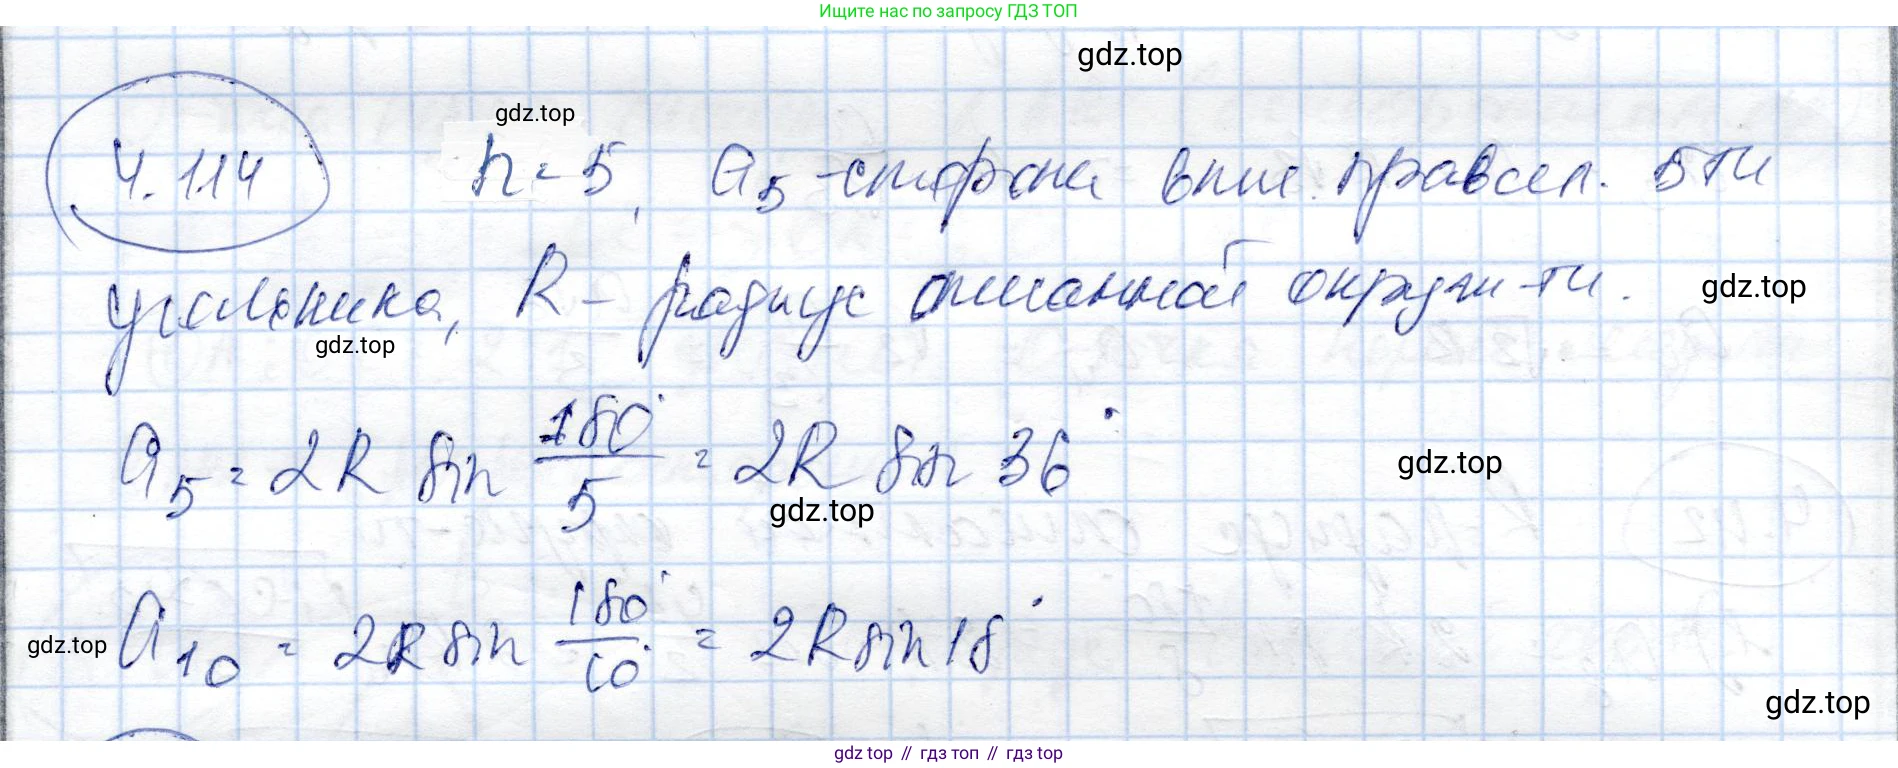 Ищите нас по запросу ГДЗ ТОП
gdz.top
gdz.top
4.114 n = 5, a₅ - сторона впис. правил. 5ти
угольника, R - радиус описанной окружн-ти.
gdz.top
gdz.top
a₅ = 2R sin 180°/5 = 2R sin 36°
gdz.top
gdz.top
a₁₀ = 2R sin 180°/10 = 2R sin 18°
gdz.top
gdz.top
gdz top // гдз топ // гдз top